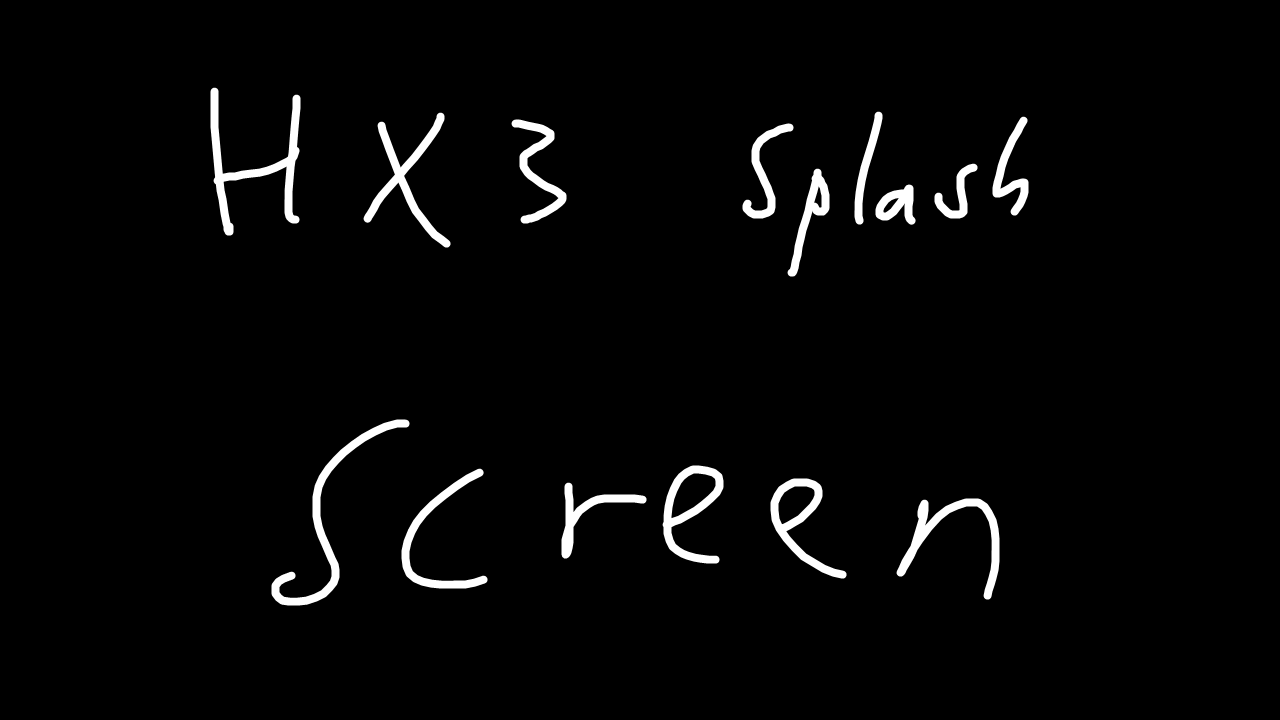 HX3 splash
Screen